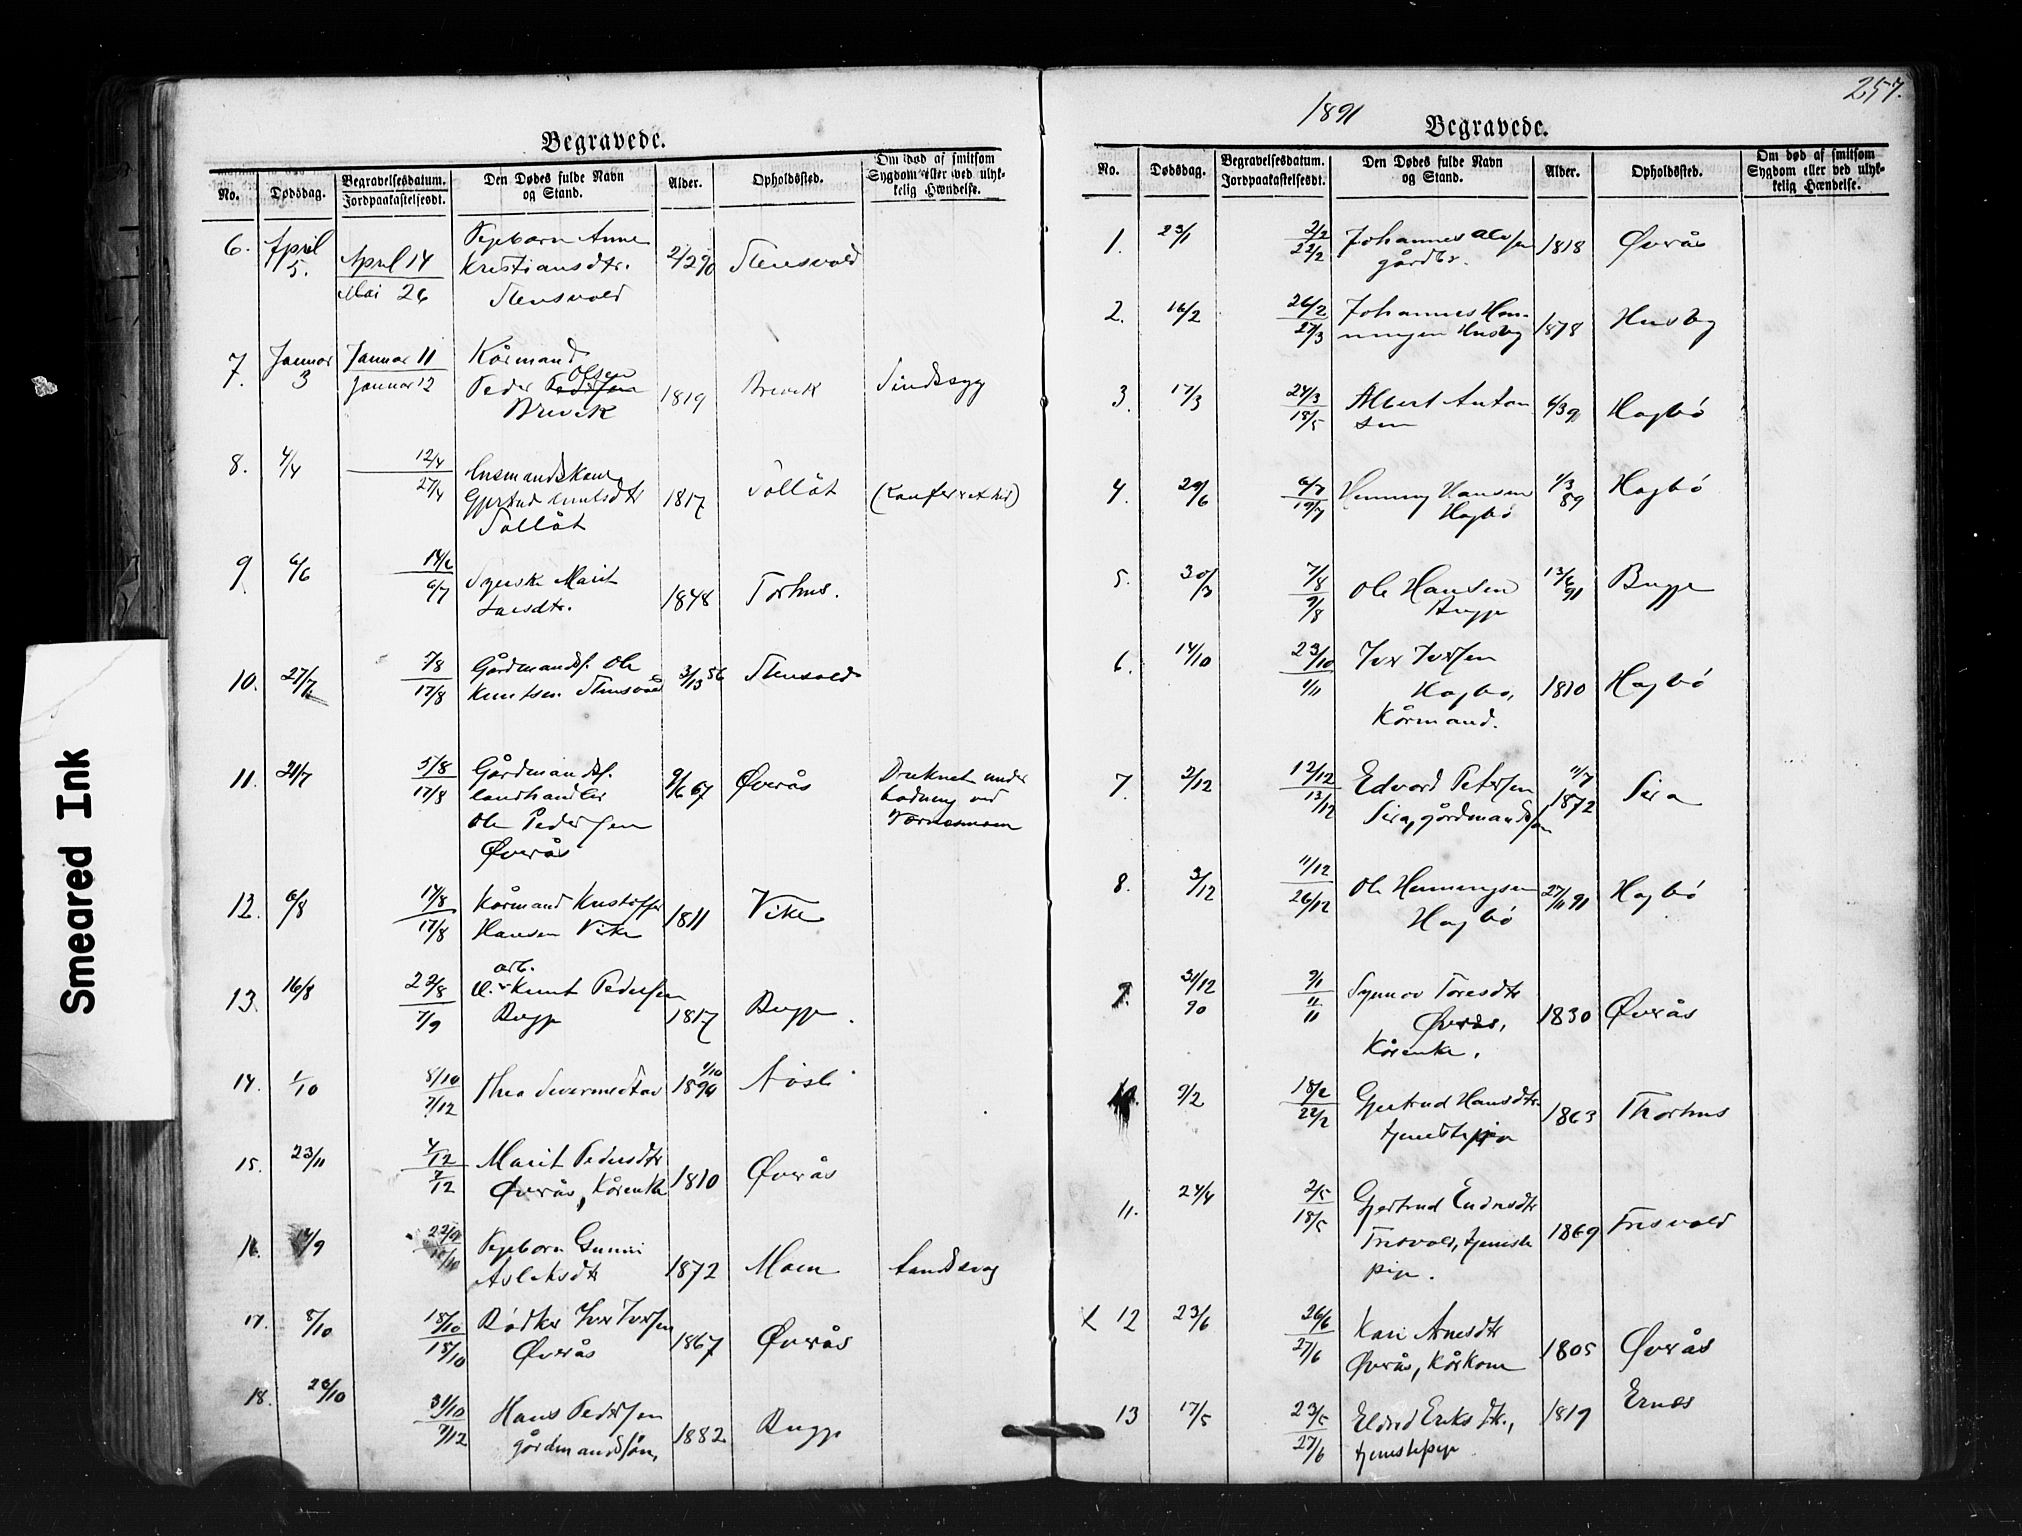 257.
1891
Begravede.
No. Dødsdag. Begravelsesdatum. Jordpaakastelsesdt. Den Dødes fulde Navn og Stand. Alder. Opholdssted. Om død af smitsom Sygdom eller ved ulykkelig Hændelse.
6. April 5. April 14 Pigebarn Anne 2/2 90 Stensvold
Mai 26 Kristiansdtr.
Stensvold
7. Januar 3 Januar 11 Kårmand
Januar 12 Peder Olsen 1819 Brevik Sindssyg
Brevik
8. 4/4 12/4
27/4 Gjertrud Knutsdtr 1817
9. 6/6 14/6 Marit
6/7 Larsdtr. 1848 Torhus.
10. 27/7 7/8 Gårdmandsf. Ole 3/3 56 Stensvold
17/8 Knutsen Stensvold
11. 21/7 5/8 Gårdmandsf. 9/6 67 Øverås Druknet under
17/8 landhandler badning ved
Ole Pedersen
Øverås
12. 6/8 17/8 Kårmand Kristoffer 1811 Vike
17/8 Hansen Vike
13. 16/8 22/8 arb. Knut Pedersen 1817 Bugge.
7/9 Bugge
14. 1/10 8/10 Thea 1/10 1890
7/12
15. 23/11 7/12 Marit Pedersdtr 1810 Øverås
7/12 Øverås, Kårenke
16. 22/9 Pigebarn
Aslaksdtr 1872 Moen Sindssyg
17. 8/10 18/10 Bødker Iver Iversen 1867 Øverås
18/10 Øverås
18. 26/10 31/10 Hans Pedersen 1882 Bugge
7/12 gårdmandssøn,
Begravede.
No. Dødsdag. Begravelsesdatum. Jordpaakastelsesdt. Den Dødes fulde Navn og Stand. Alder. Opholdssted. Om død af smitsom Sygdom eller ved ulykkelig Hændelse.
1. 23/1 2/2 Johannes 1818 Øverås
22/2 gårdbr.
2. 16/2 26/2 Johannes Hen-
27/3 ningsen Husby 1878 Husby
3. 17/3 24/3 Albert Anton 6/3 91 Hagbø
18/5 sen
4. 29/6 6/7 Henning Hansen 1/3 89 Hagbø
19/7 Hagbø
5. 30/3 7/8 Ole Hansen 13/6 91 Bugge
9/8 Bugge
6. 14/10 23/10 Iver Iversen
1/11 Hagbø, 1810 Hagbø
Kårmand.
7. 2/12 12/12 Edvard Petersen 11/7 1872 Sira
13/12 Sira, gårdmandssøn
8. 3/12 11/12 Ole Henningsen 27/11 91 Hagbø
26/12 Hagbø
31/12 90 9/1 Synnøv Toresdtr 1830 Øverås
11 Øverås,
Kårenke.
9/2 18/2 Gjertrud Hansdtr 1863 Thorhus
22/2 tjenestepige
11. 24/4 2/5 Gjertrud Endresdtr
18/5 Frisvold, tjeneste 1869 Frisvold
pige.
x 12 23/6 26/6 Kari Arnesdtr 1805 Øverås
27/6 Øverås, Kårkone
13 17/5 23/5 Eldrid Eriksdtr., 1819 Ernæs
27/6 tjenestepige
Smeared Ink